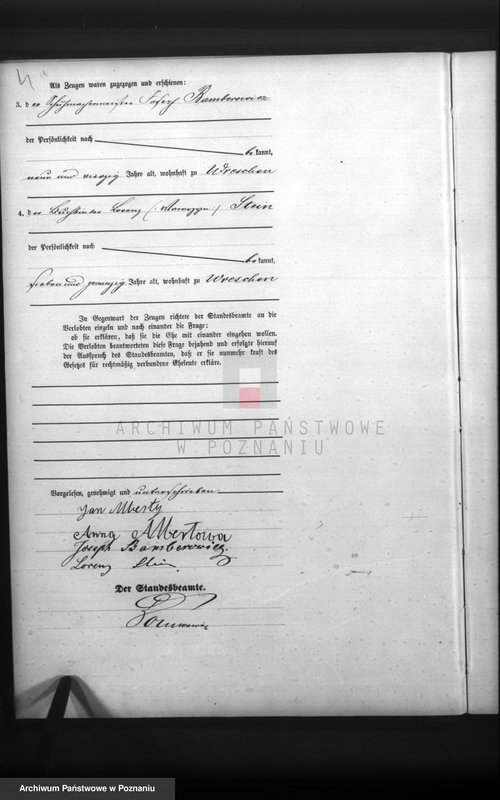 Als Zeugen waren zugezogen und erschienen:
3. der Schuhmachermeister Joseph Bamberowicz
der Persönlichkeit nach
bekannt,
neun und vierzig Jahre alt, wohnhaft zu Wreschen
4. der Lorenz (: Wawrzyn :) Stein
der Persönlichkeit nach
bekannt,
sieben und zwanzig Jahre alt, wohnhaft zu Wreschen
In Gegenwart der Zeugen richtete der Standesbeamte an die
Verlobten einzeln und nach einander die Frage:
ob sie erklären, daß sie die Ehe mit einander eingehen wollen.
Die Verlobten beantworteten diese Frage bejahend und erfolgte hierauf
der Ausspruch des Standesbeamten, daß er sie nunmehr kraft des
Gesetzes für rechtmäßig verbundene Eheleute erkläre.
ARCHIWUM PAŃSTWOWE
W POZNANIU
Vorgelesen, genehmigt und unterschrieben
Jan
Anna Albertowa
Joseph Bamberowicz.
Lorenz Stein.
Der Standesbeamte.
Archiwum Państwowe w Poznaniu